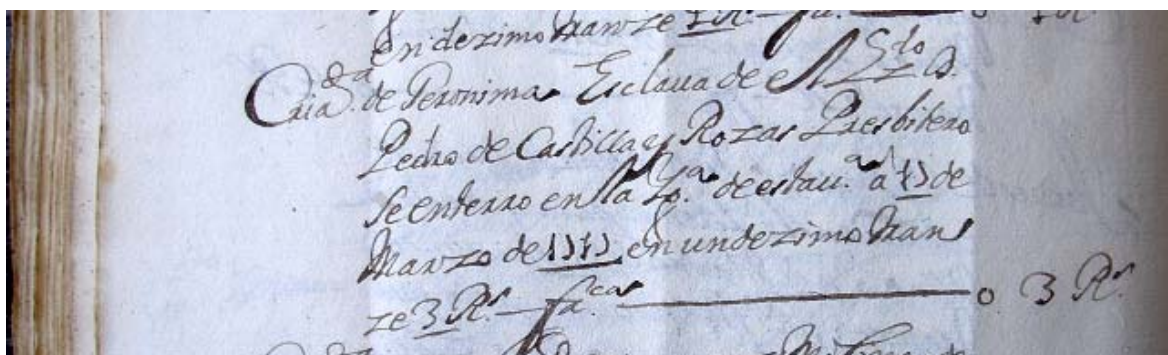 en dezimo tranze 7 Rs. — fa. — o 7 Rs
Criada. de Jeronima Esclaua de el Lzdo D.
Pedro de Castilla y Rozas Presbitero
se enterro en la Yga. de esta u.a a de
Marzo de en undezimo tran
ze 3 Rs. — fa. — o 3 Rs.